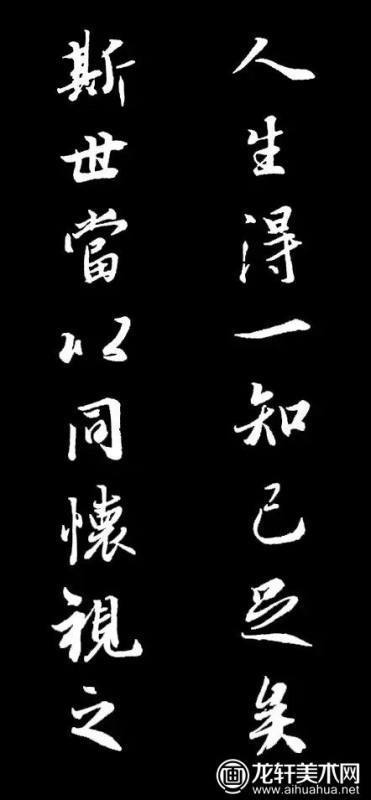 人生得一知己足矣
斯世當以同懷視之
画 龙轩美术网
www.aihuahua.net